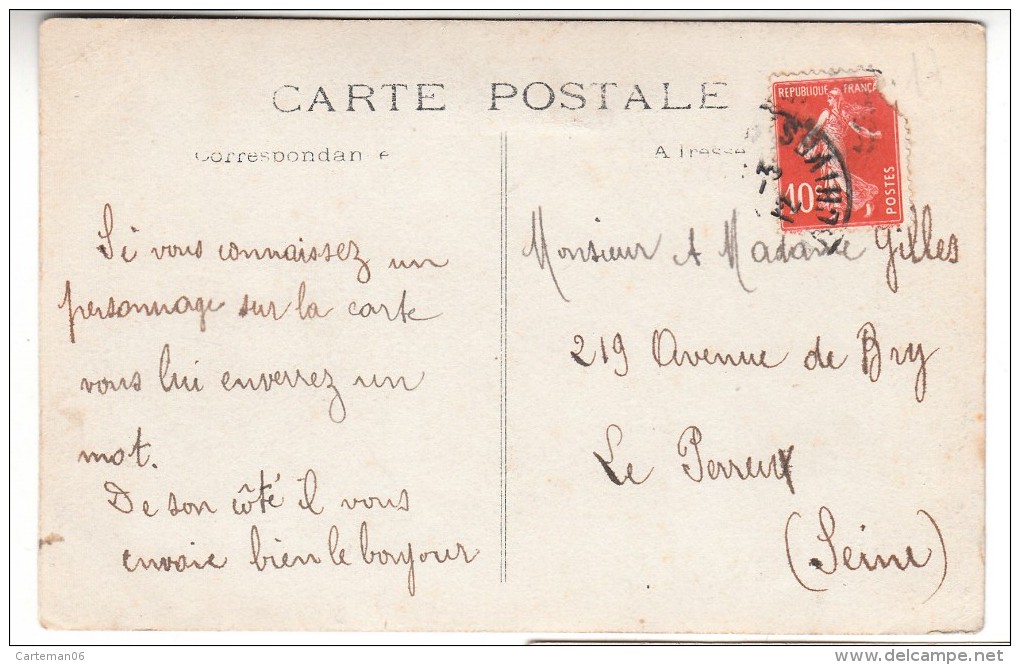 CARTE POSTALE
Correspondan e
A resse
REPUBLIQUE FRANÇA
10
POSTES
Si vous connaissez un
personnage sur la carte
vous lui enverrez un
mot.
De son côté il vous
envoie bien le bonjour
Monsieur et Madame Gilles
219 Avenue de Bry
Le Perreux
(Seine)
Carteman06
delcampe.net